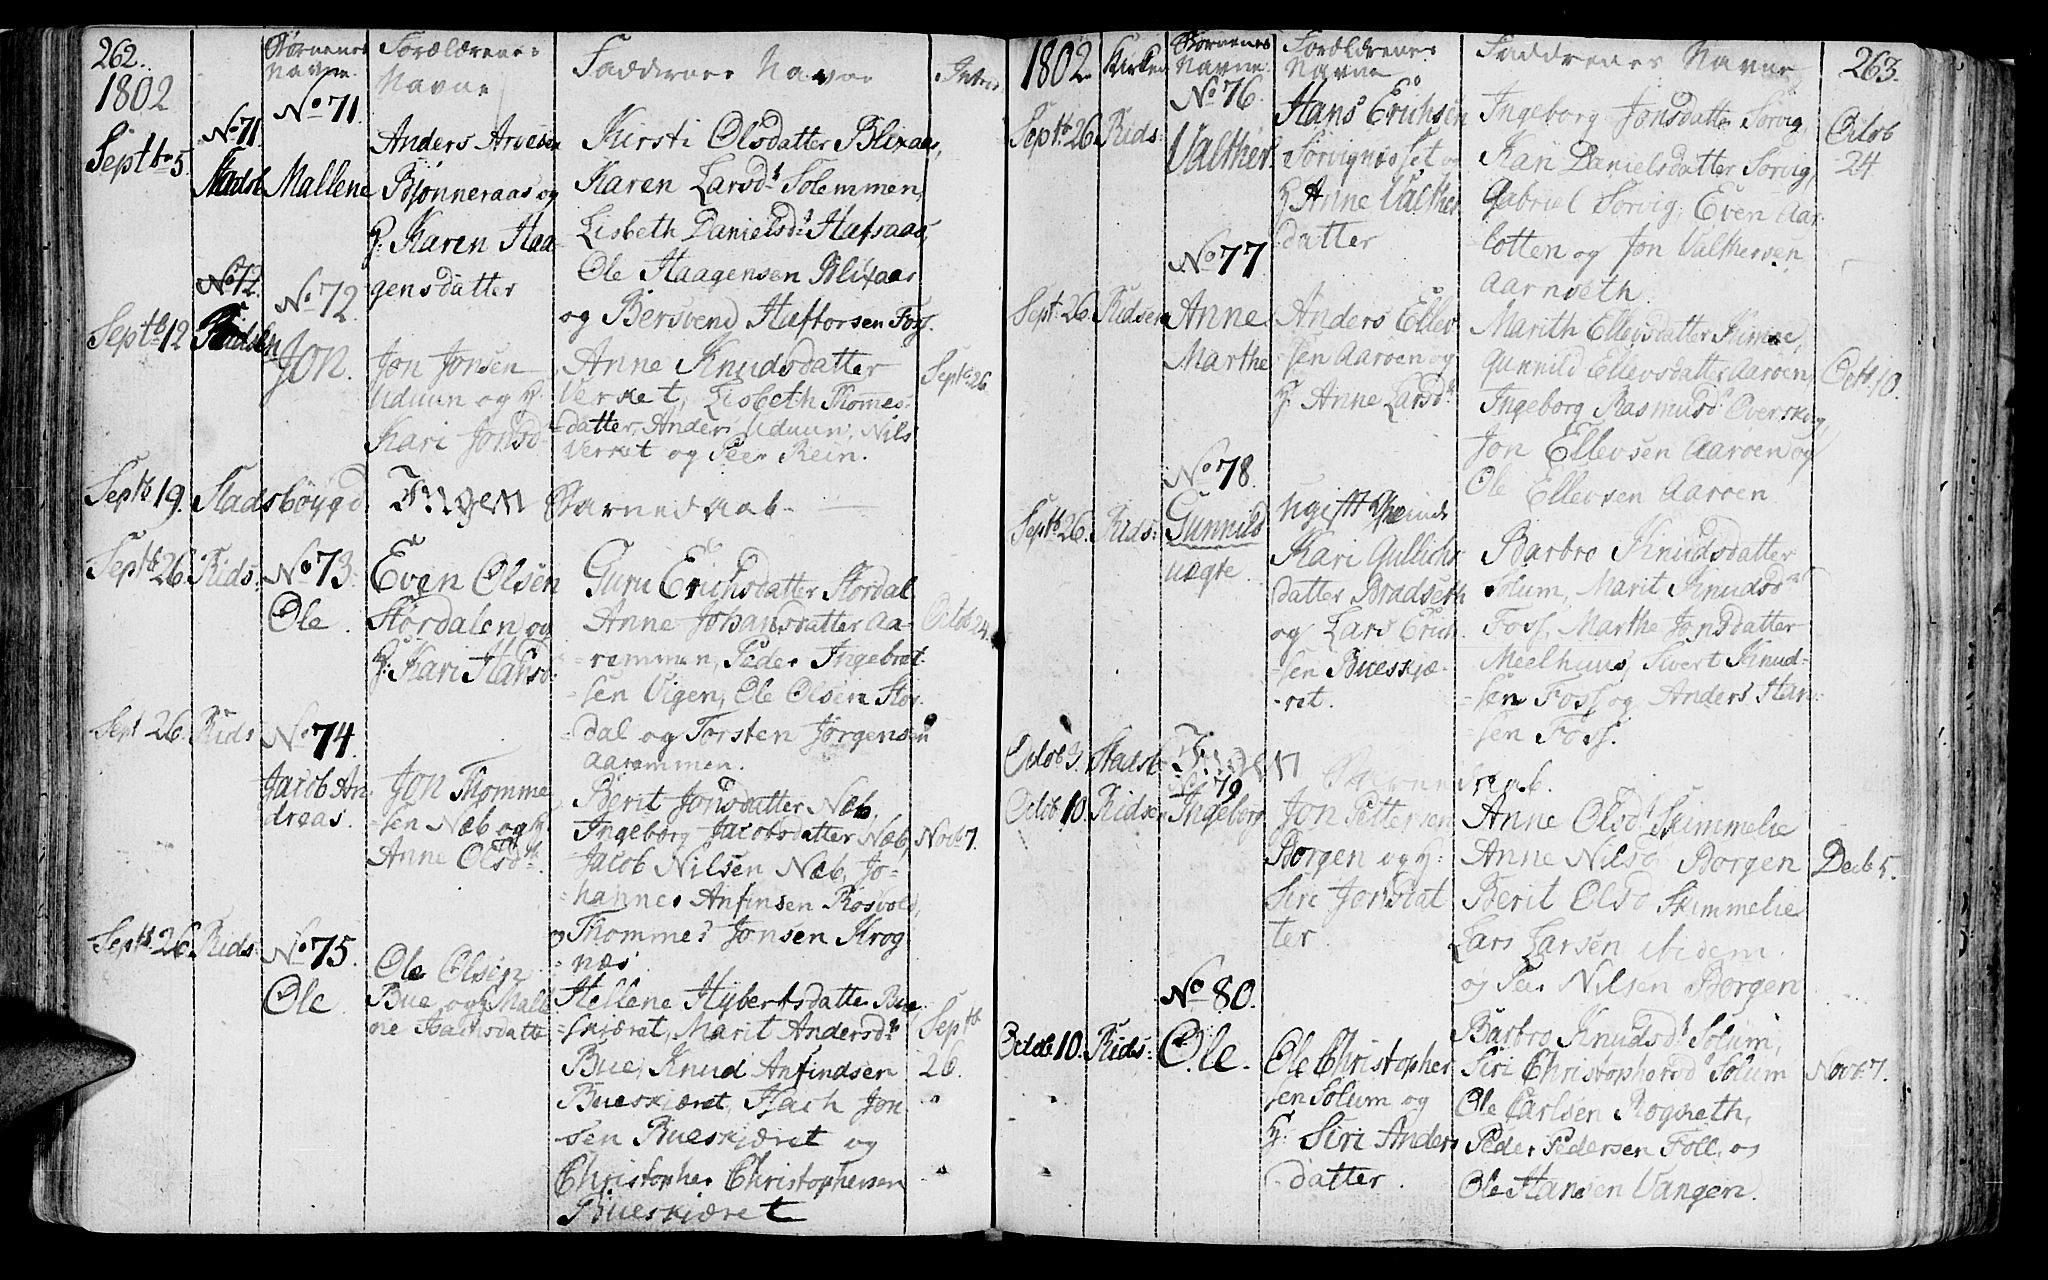 262.
1802
Børnenes Navne
Forældrenes Navne
Faddrenes Navne
Intro
Septbr 5.
No 71
Stadsb
No 71
Mallene
Anders Arvesen
Bjønneraas og
H: Karen Haa-
gensdatter
Kirsti Olsdatter Blixaas,
Karen Larsdr Solemmen,
Lisbeth Danielsdr Hafsaas,
Ole Haagensen Blixaas
og Bersvend Haftorsen Foss.
Septb 12
No 72.
Ridsen
No 72.
Jon.
Jon Jonsen
Uduun og H:
Kari Jonsd
Anne Knudsdatter
Verket, Lisbeth Thomes-
datter, Anders Uduun, Nils
Verket og Peer Rein.
Septb 26
Septb 19.
Stadsbøygd
Ingen Barnedaab.
Septb 26
Rids:
No 73.
Ole
Even Olsen
Stordalen og
H: Kari Hansd:
Guru Erichsdatter Stordal
Anne Johansdatter Aa-
remmen, Peder Ingebret-
sen Vigen, Ole Olsen Stor-
dal og Torsten Jørgensen
Aaremmen.
Octob 24.
Sept 26.
Rids
No 74
Jacob An
dreas.
Jon Thomme
sen Næb og H:
Anne Olsdtr.
Berit Jonsdatter Næb,
Ingeborg Jacobsdatter Næb,
Jacob Nilsen Næb, Jo-
hannes Anfinsen Rosvold,
og Thommes Jonsen Krog
næs.
Novb 7.
Septb 26.
Rids:
No 75.
Ole
Ole Olsen
Bue og H Malle
ne Isachsdatte
Hellene Hybertsdatter Bue
skjæret, Marit Andersdr
Bue, Knud Anfindsen
Bueskjæret, Isach Jon
sen Bueskjæret og
Christopher Christophersen
Bueskjæret
Septb
26.
1802
Kirken
Børnenes
Navne
Forældrenes
Navne
Faddrenes Navne
263.
Septb. 26
Rids:
No 76.
Valther.
Hans Erichsen
Sørvignesset og
H Anne Valther
datter
Ingeborg Jonsdatter Sørvig,
Kari Danielsdatter Sørvig,
Gabriel Sørvig, Even Aar-
lotten og Jon Valthersen
Aarnseth.
Octob
24
Sept. 26.
Ridsen
No 77
Anne
Marthe
Anders Ellev
sen Aaroen og
H. Anne Larsdr
Marith Ellevsdatter
Gunnild Ellevsdatter Aaroen,
Ingeborg Rasmusdr Overskog,
Jon Ellevsen Aaroen og
Ole Ellevsen Aaroen.
Octb. 10.
Septb 26.
Rids:
No 78.
Gunnild
uægte.
Ugift Qvinde
Kari Gullichs
datter Bradseth
og Lars Erich
sen Bueskjæ-
ret.
Barbro Knudsdatter
Solum, Marit Knudsdr
Foss, Marthe Jonsdatter
Meelhuus, Sivert Knud-
sen Foss og Anders Han-
sen Foss.
Octob 3.
Stadsb
Ingen Barnedaab.
Octob 10.
Ridsen
79
Ingeborg
Jon Pettersen
Borgen og H:
Siri Jonsdat
ter.
Anne Olsdr Skimmelie
Anne Nilsd Borgen
Berit Olsd Skimmelie
Lars Larsen ibidem.
og Peer Nilsen Borgen
Decb 5.
Octob 10.
Rids:
No 80.
Ole.
Ole Christopher
sen Solum og
H: Siri Anders
datter.
Barbro Knudsdr Solum,
Siri Christophersd Solum
Ole Carlsen Rogneth,
Peder Pedersen Foll, og
Ole Hansen Vangen.
Novb. 7.